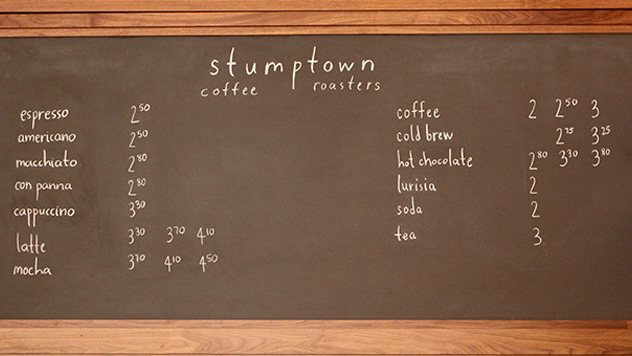 stumptown
coffee roasters
espresso 2 50
americano 2 50
macchiato 2 80
con panna 2 80
cappuccino 3 30
latte 3 30 3 70 4 10
mocha 3 70 4 10 4 50
coffee 2 2 50 3
cold brew 2 75 3 25
hot chocolate 2 80 3 30 3 80
lurisia 2
soda 2
tea 3